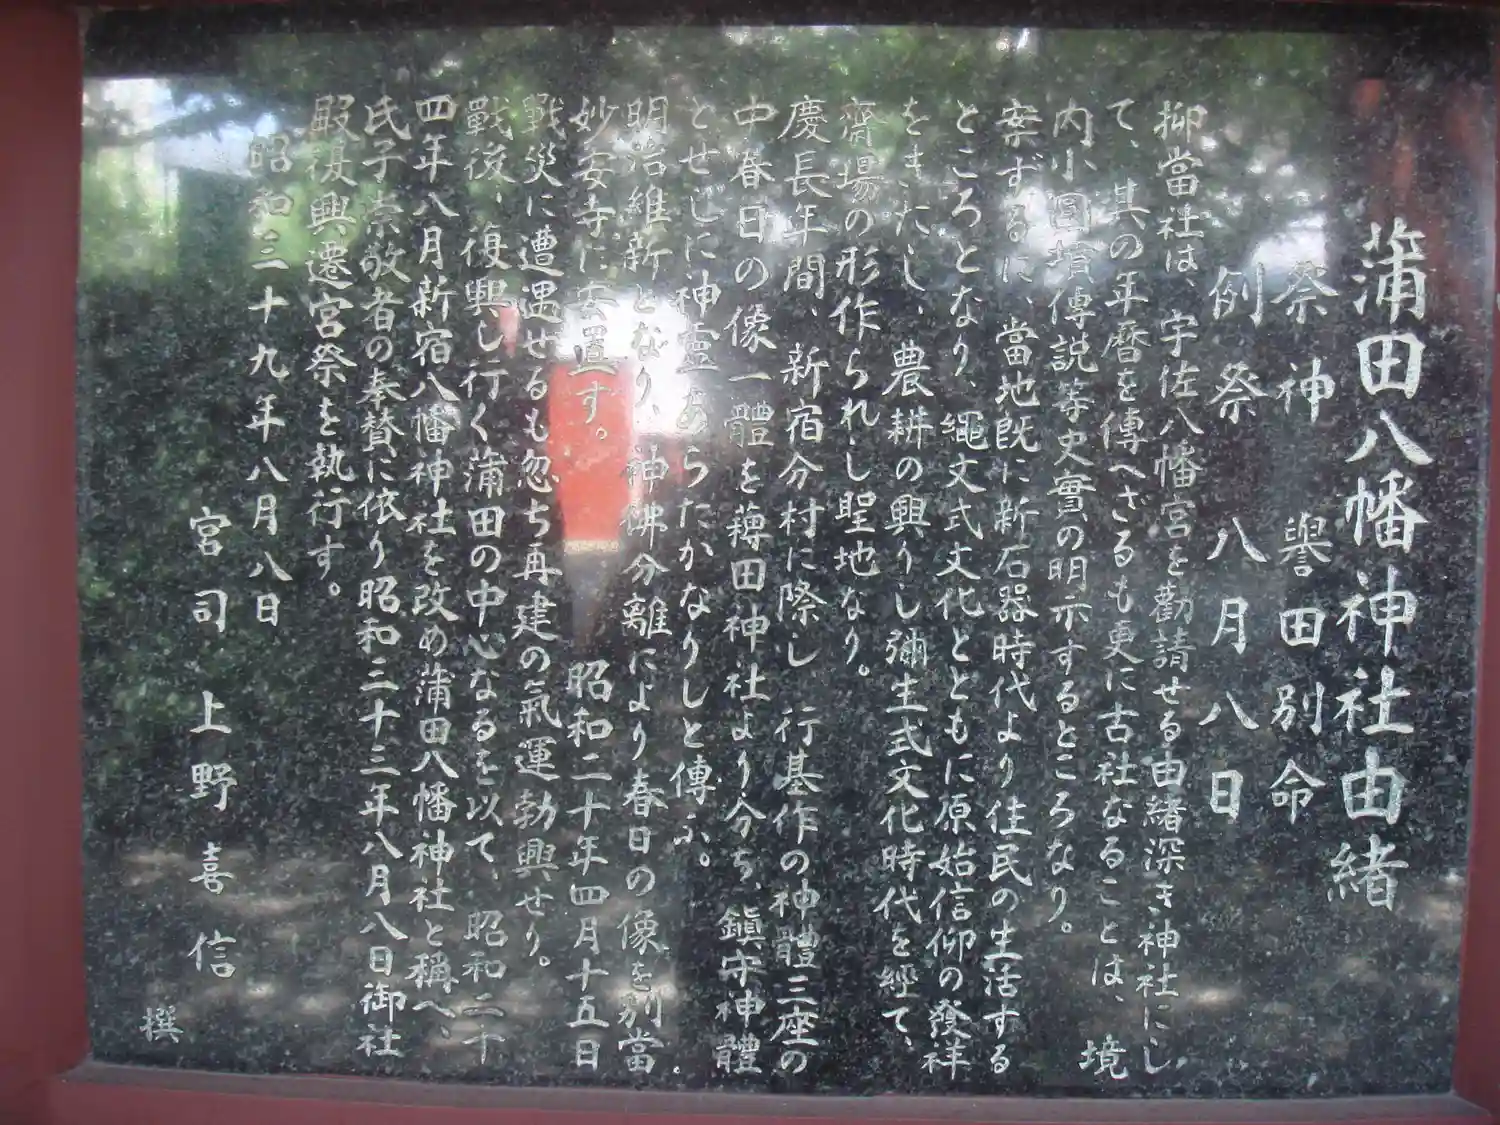 蒲田八幡神社由緒
祭神 譽田別命
例祭 八月八日
抑當社は、宇佐八幡宮を勸請せる由緒深き神社にし
て、其の年暦を傳へざるも更に古社なることは、境
内小圓墳傳説等史實の明示するところなり。
案ずるに、當地既に新石器時代より住民の生活する
ところとなり、繩文式文化とともに原始信仰の發祥
をきたし、農耕の興りし彌生式文化時代を經て、
齋場の形作られし聖地なり。
慶長年間、新宿分村に際し 行基作の神體三座の
中春日の像一體を薭田神社より分ち、鎭守神體
とせしに神霊あらたかなりしと傳ふ。
明治維新となり、神佛分離により春日の像を別當
妙安寺に安置す。 昭和二十年四月十五日
戰災に遭遇せるも忽ち再建の氣運勃興せり。
戰後、復興し行く蒲田の中心なるを以て、昭和二十
四年八月新宿八幡神社を改め蒲田八幡神社と稱へ、
氏子崇敬者の奉賛に依り昭和三十三年八月八日御社
殿復興遷宮祭を執行す。
昭和三十九年八月八日
宮司 上野喜信 撰